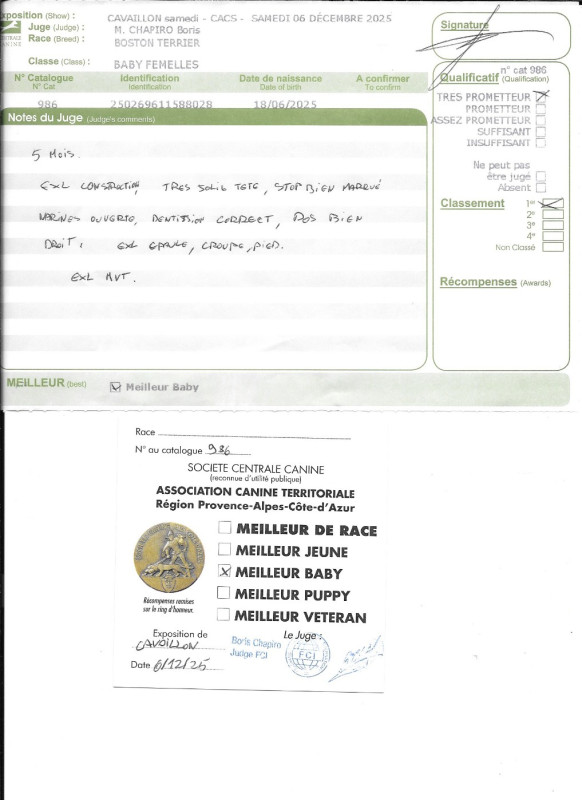 Exposition (Show) : CAVAILLON samedi - CACS - SAMEDI 06 DÉCEMBRE 2025
Juge (Judge) : M. CHAPIRO Boris
Race (Breed) : BOSTON TERRIER
Classe (Class) : BABY FEMELLES
N° Catalogue Identification Date de naissance A confirmer
N° Cat Identification Date of birth To confirm
986 250269611588028 18/06/2025
Notes du Juge (Judge's comments)
5 MOIS.
EXL CONSTRUCTION, TRES SOLID TETE, STOP BIEN MARQUÉ
NARINES OUVERTE, DENTISSION CORRECT, DOS BIEN
DROIT, EXL EPAULE, CROUPE, PIED.
EXL MVT.
MEILLEUR (best) Meilleur Baby
Signature
n° cat 986
Qualificatif (Qualification)
TRES PROMETTEUR
PROMETTEUR
ASSEZ PROMETTEUR
SUFFISANT
INSUFFISANT
Ne peut pas
être jugé
Absent
Classement 1er
2e
3e
4e
Non Classé
Récompenses (Awards)
Race
N° au catalogue 986
SOCIETE CENTRALE CANINE
(reconnue d'utilité publique)
ASSOCIATION CANINE TERRITORIALE
Région Provence-Alpes-Côte-d'Azur
MEILLEUR DE RACE
MEILLEUR JEUNE
MEILLEUR BABY
MEILLEUR PUPPY
MEILLEUR VETERAN
Récompenses remises
sur le ring d'honneur.
Exposition de Le Juge :
CAVAILLON
Boris Chapiro
Judge FCI
FCI
Date 6/12/25